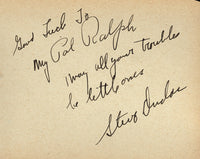 Good Luck To
My Pal Ralph
May all your troubles
be little ones
Steve